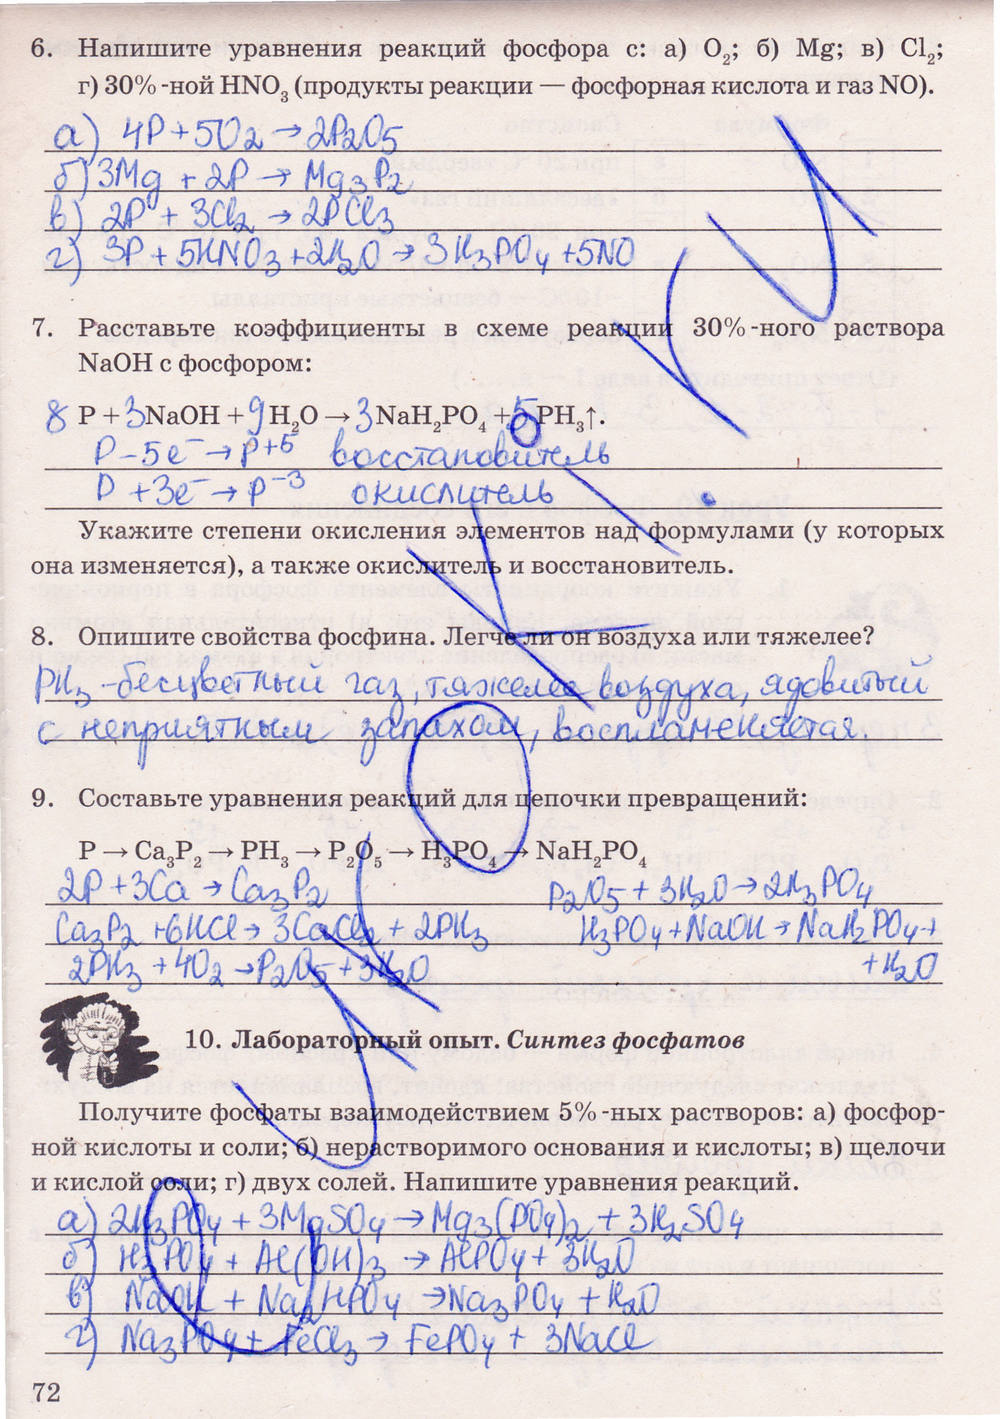 6. Напишите уравнения реакций фосфора с: а) O₂; б) Mg; в) Cl₂;
г) 30%-ной HNO₃ (продукты реакции — фосфорная кислота и газ NO).
а) 4P + 5O₂ → 2P₂O₅
б) 3Mg + 2P → Mg₃P₂
в) 2P + 3Cl₂ → 2PCl₃
г) 3P + 5HNO₃ + 2H₂O → 3H₃PO₄ + 5NO
7. Расставьте коэффициенты в схеме реакции 30%-ного раствора
NaOH с фосфором:
8 P + 3NaOH + 9H₂O → 3NaH₂PO₄ + 5PH₃↑.
P – 5e⁻ → P⁺⁵ восстановитель
P + 3e⁻ → P⁻³ окислитель
Укажите степени окисления элементов над формулами (у которых
она изменяется), а также окислитель и восстановитель.
8. Опишите свойства фосфина. Легче ли он воздуха или тяжелее?
PH₃ - бесцветный газ, тяжелее воздуха, ядовитый
с неприятным запахом, воспламеняется.
9. Составьте уравнения реакций для цепочки превращений:
P → Ca₃P₂ → PH₃ → P₂O₅ → H₃PO₄ → NaH₂PO₄
2P + 3Ca → Ca₃P₂ P₂O₅ + 3H₂O → 2H₃PO₄
Ca₃P₂ + 6HCl → 3CaCl₂ + 2PH₃ H₃PO₄ + NaOH → NaH₂PO₄ +
2PH₃ + 4O₂ → P₂O₅ + 3H₂O + H₂O
10. Лабораторный опыт. Синтез фосфатов
Получите фосфаты взаимодействием 5%-ных растворов: а) фосфор-
ной кислоты и соли; б) нерастворимого основания и кислоты; в) щелочи
и кислой соли; г) двух солей. Напишите уравнения реакций.
а) 2H₃PO₄ + 3MgSO₄ → Mg₃(PO₄)₂ + 3H₂SO₄
б) H₃PO₄ + Al(OH)₃ → AlPO₄ + 3H₂O
в) NaOH + Na₂HPO₄ → Na₃PO₄ + H₂O
г) Na₃PO₄ + FeCl₃ → FePO₄ + 3NaCl
72